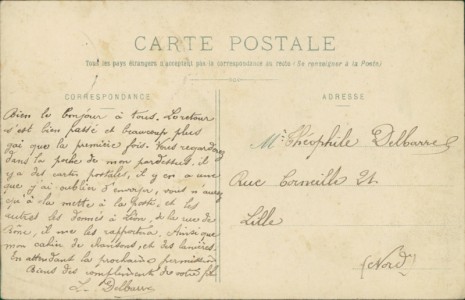 CARTE POSTALE
Tous les pays étrangers n'acceptent pas la correspondance au recto (Se renseigner à la Poste)
CORRESPONDANCE
Bien le bonjour à tous. Le retour
s'est bien passé et beaucoup plus
gai que la première fois. Vous regarderez
dans la poche de mon pardessus, il
y a des cartes postales, il y en a une
que j'ai oublier d'envoyer, vous n'aurez
qu'à la mettre à la Poste, et les
autres les donnés à Léon, de la rue de
il me les rapportera. Ainsi que
mon cahier de chansons, et des lanières.
En attendant la prochaine permission
des compliments de votre fils
L. Delbarre
ADRESSE
Mr Théophile Delbarre
Rue Corneille 21
Lille
(Nord)